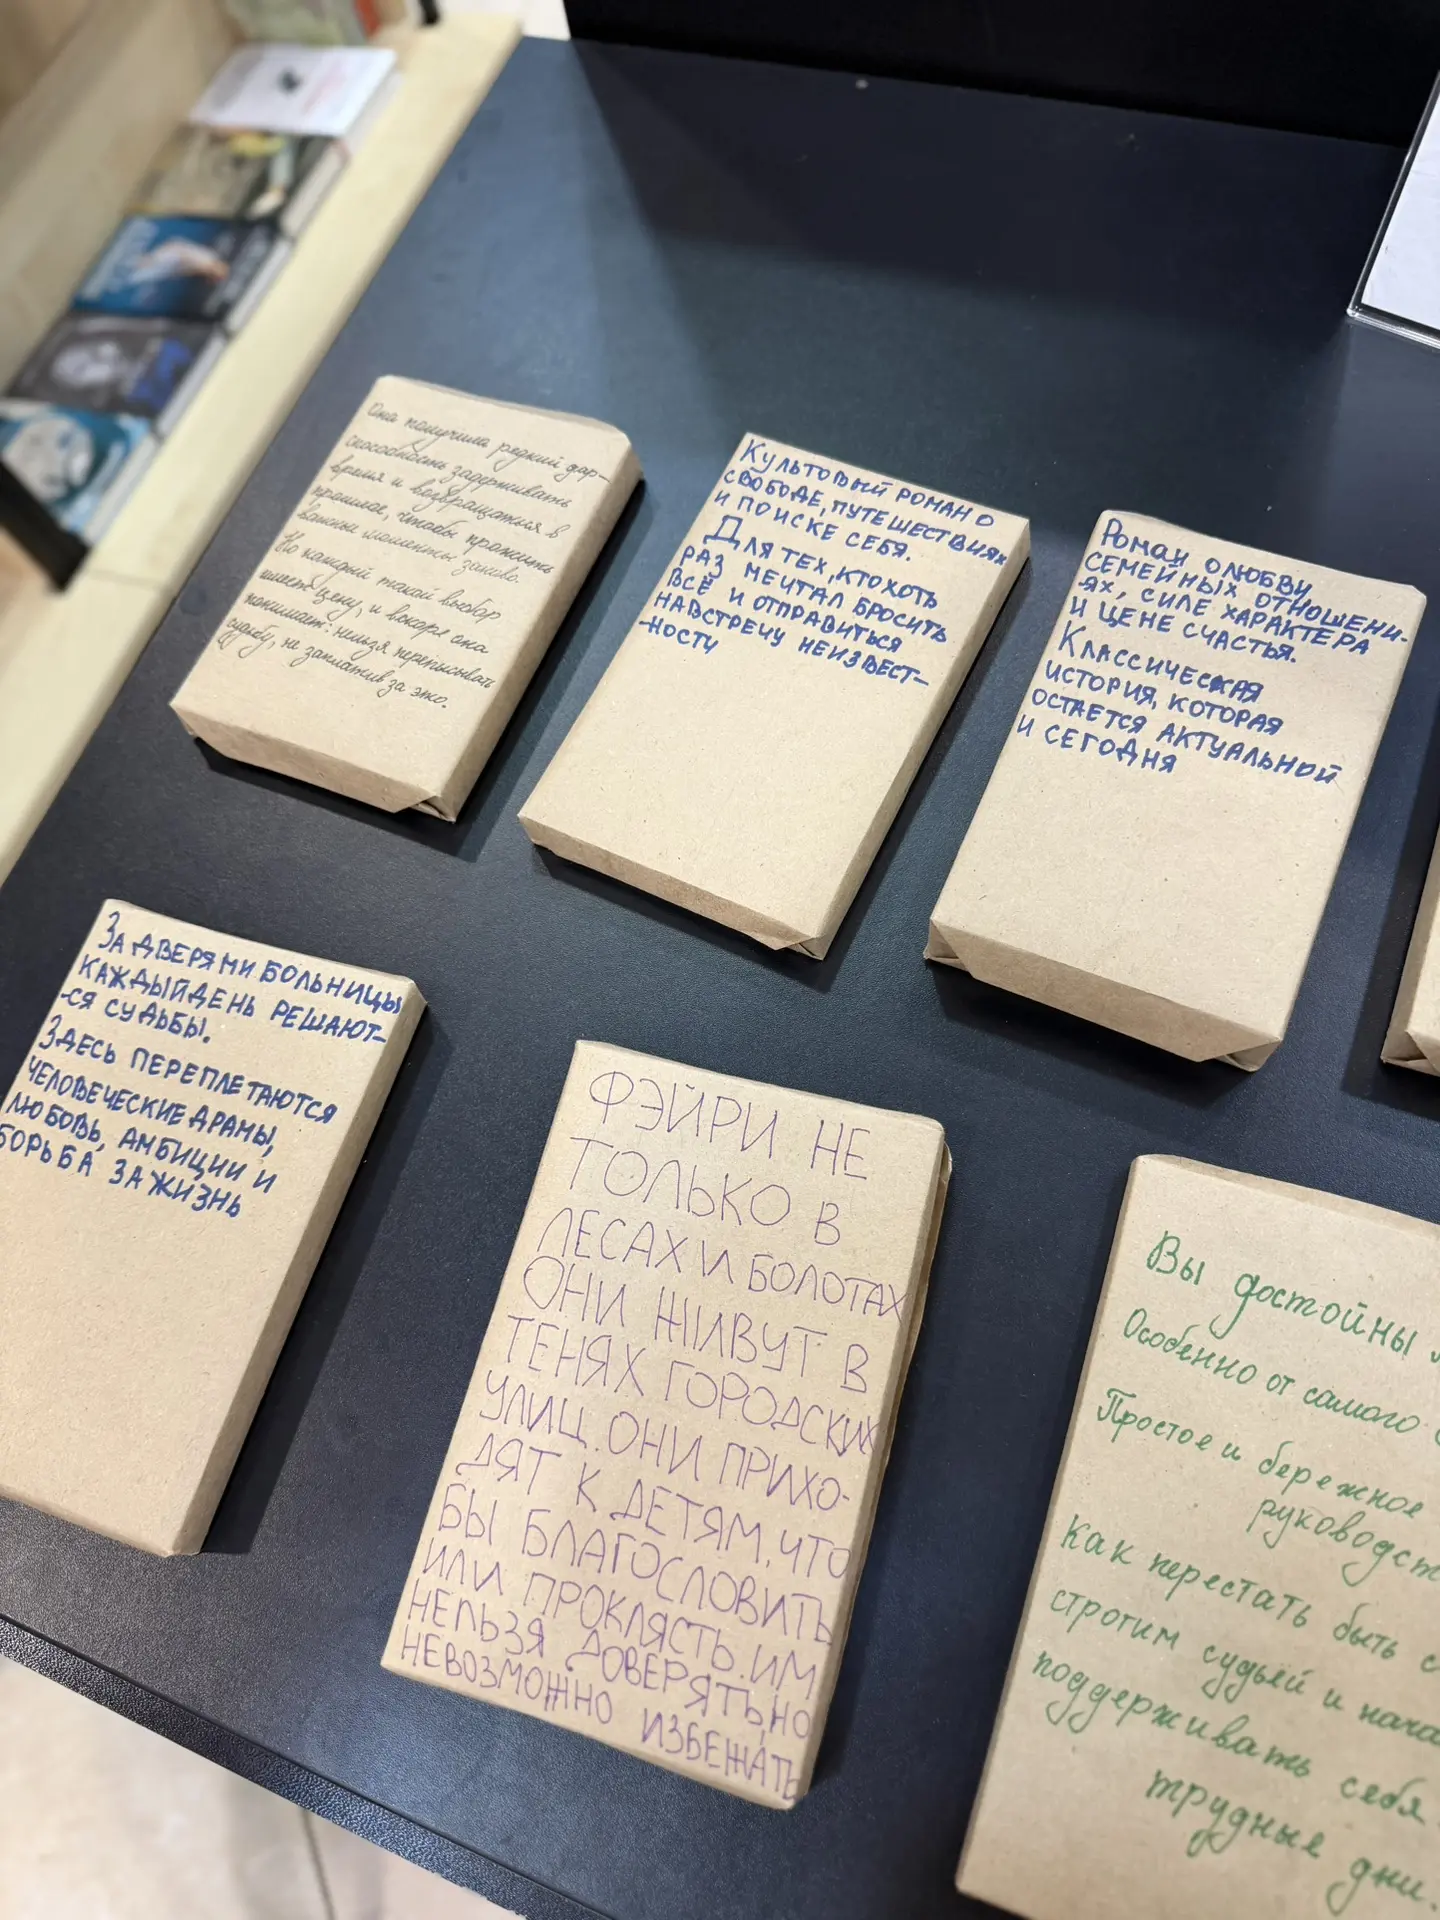 Она получила редкий дар—
способность задерживать
время и возвращаться в
прошлое, чтобы прожить
важные моменты заново.
Но каждый такой выбор
имеет цену, и вскоре она
понимает: нельзя переписывать
судьбу, не заплатив за это.
Культовый роман о
свободе, путешествиях
и поиске себя.
Для тех, кто хоть
раз мечтал бросить
всё и отправиться
навстречу неизвест-
-ности
Роман о любви,
семейных отношени-
-ях, силе характера
и цене счастья.
Классическая
история, которая
остается актуальной
и сегодня
За дверями больницы
каждый день решают-
-ся судьбы.
Здесь переплетаются
человеческие драмы,
любовь, амбиции и
борьба за жизнь
ФЭЙРИ НЕ
ТОЛЬКО В
ЛЕСАХ И БОЛОТАХ
ОНИ ЖИВУТ В
ТЕНЯХ ГОРОДСКИХ
УЛИЦ. ОНИ ПРИХО-
ДЯТ К ДЕТЯМ, ЧТО
БЫ БЛАГОСЛОВИТЬ
ИЛИ ПРОКЛЯСТЬ. ИМ
НЕЛЬЗЯ ДОВЕРЯТЬ, НО
НЕВОЗМОЖНО ИЗБЕЖАТЬ
Вы достойны
Особенно от самого
Простое и бережное
руководст
Как перестать быть
строгим судьёй и нача
поддерживать себя
трудные дни.